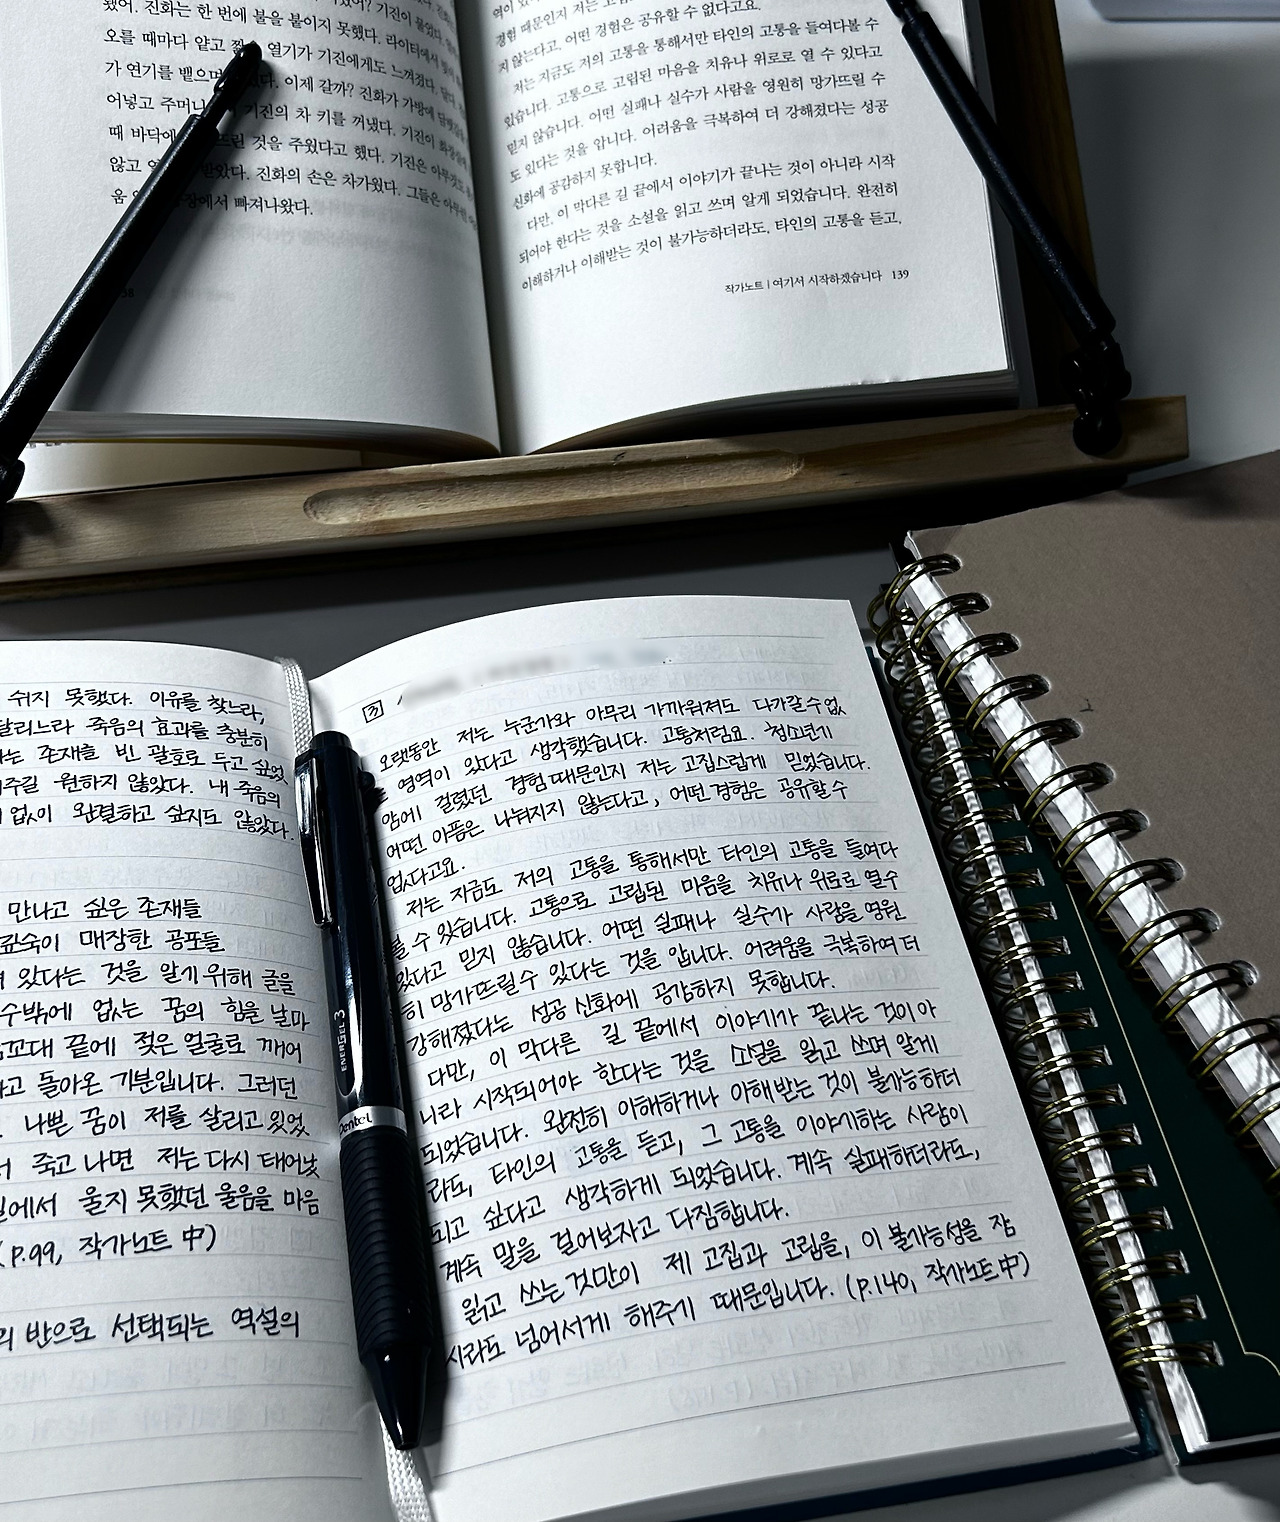 했어. 진화는 한 번에 불을 붙이지 못했다. 라이터에서
오를 때마다 얕고 열기가 기진에게도 느껴졌다.
가 연기를 뱉으며 이제 갈까? 진화가 가방에
어넣고 주머니 기진의 차 키를 꺼냈다. 기진이
때 바닥에 것을 주웠다고 했다. 기진은
않고 받았다. 진화의 손은 차가웠다. 그들은
움 에서 빠져나왔다.
경험 때문인지 저는
지 않는다고. 어떤 경험은 공유할 수 없다고요.
저는 지금도 저의 고통을 통해서만 타인의 고통을 들여다볼 수
있습니다. 고통으로 고립된 마음을 치유나 위로로 열 수 있다고
믿지 않습니다. 어떤 실패나 실수가 사람을 영원히 망가뜨릴 수
도 있다는 것을 압니다. 어려움을 극복하여 더 강해졌다는 성공
신화에 공감하지 못합니다.
다만, 이 막다른 길 끝에서 이야기가 끝나는 것이 아니라 시작
되어야 한다는 것을 소설을 읽고 쓰며 알게 되었습니다. 완전히
이해하거나 이해받는 것이 불가능하더라도, 타인의 고통을 듣고,
작가노트 | 여기서 시작하겠습니다 139
쉬지 못했다. 이유를 찾느라,
달리느라 죽음의 효과를 충분히
존재를 빈 괄호로 두고 싶었
주길 원하지 않았다. 내 죽음의
없이 완결하고 싶지도 않았다.
만나고 싶은 존재들
깊숙이 매장한 공포들
있다는 것을 알기 위해 글을
수밖에 없는 꿈의 힘을 날마
잠꼬대 끝에 젖은 얼굴로 깨어
돌아온 기분입니다. 그러던
나쁜 꿈이 저를 살리고 있었
죽고 나면 저는 다시 태어났
에서 울지 못했던 울음을 마음
(p.99, 작가노트 中)
반으로 선택되는 역설의
오랫동안 저는 누군가와 아무리 가까워져도 다가갈 수 없
영역이 있다고 생각했습니다. 고통처럼요. 청소년기
암에 걸렸던 경험 때문인지 저는 고집스럽게 믿었습니다.
어떤 아픔은 나눠지지 않는다고, 어떤 경험은 공유할 수
없다고요.
저는 지금도 저의 고통을 통해서만 타인의 고통을 들여다
볼 수 있습니다. 고통으로 고립된 마음을 치유나 위로로 열 수
있다고 믿지 않습니다. 어떤 실패나 실수가 사람을 영원
히 망가뜨릴 수 있다는 것을 압니다. 어려움을 극복하여 더
강해졌다는 성공 신화에 공감하지 못합니다.
다만, 이 막다른 길 끝에서 이야기가 끝나는 것이 아
니라 시작되어야 한다는 것을 소설을 읽고 쓰며 알게
되었습니다. 완전히 이해하거나 이해받는 것이 불가능하더
라도, 타인의 고통을 듣고, 그 고통을 이야기하는 사람이
되고 싶다고 생각하게 되었습니다. 계속 실패하더라도,
계속 말을 걸어보자고 다짐합니다.
읽고 쓰는 것만이 제 고집과 고립을, 이 불가능성을 잠
시라도 넘어서게 해주기 때문입니다. (p.140, 작가노트 中)
ENERGEL 3
Pentel